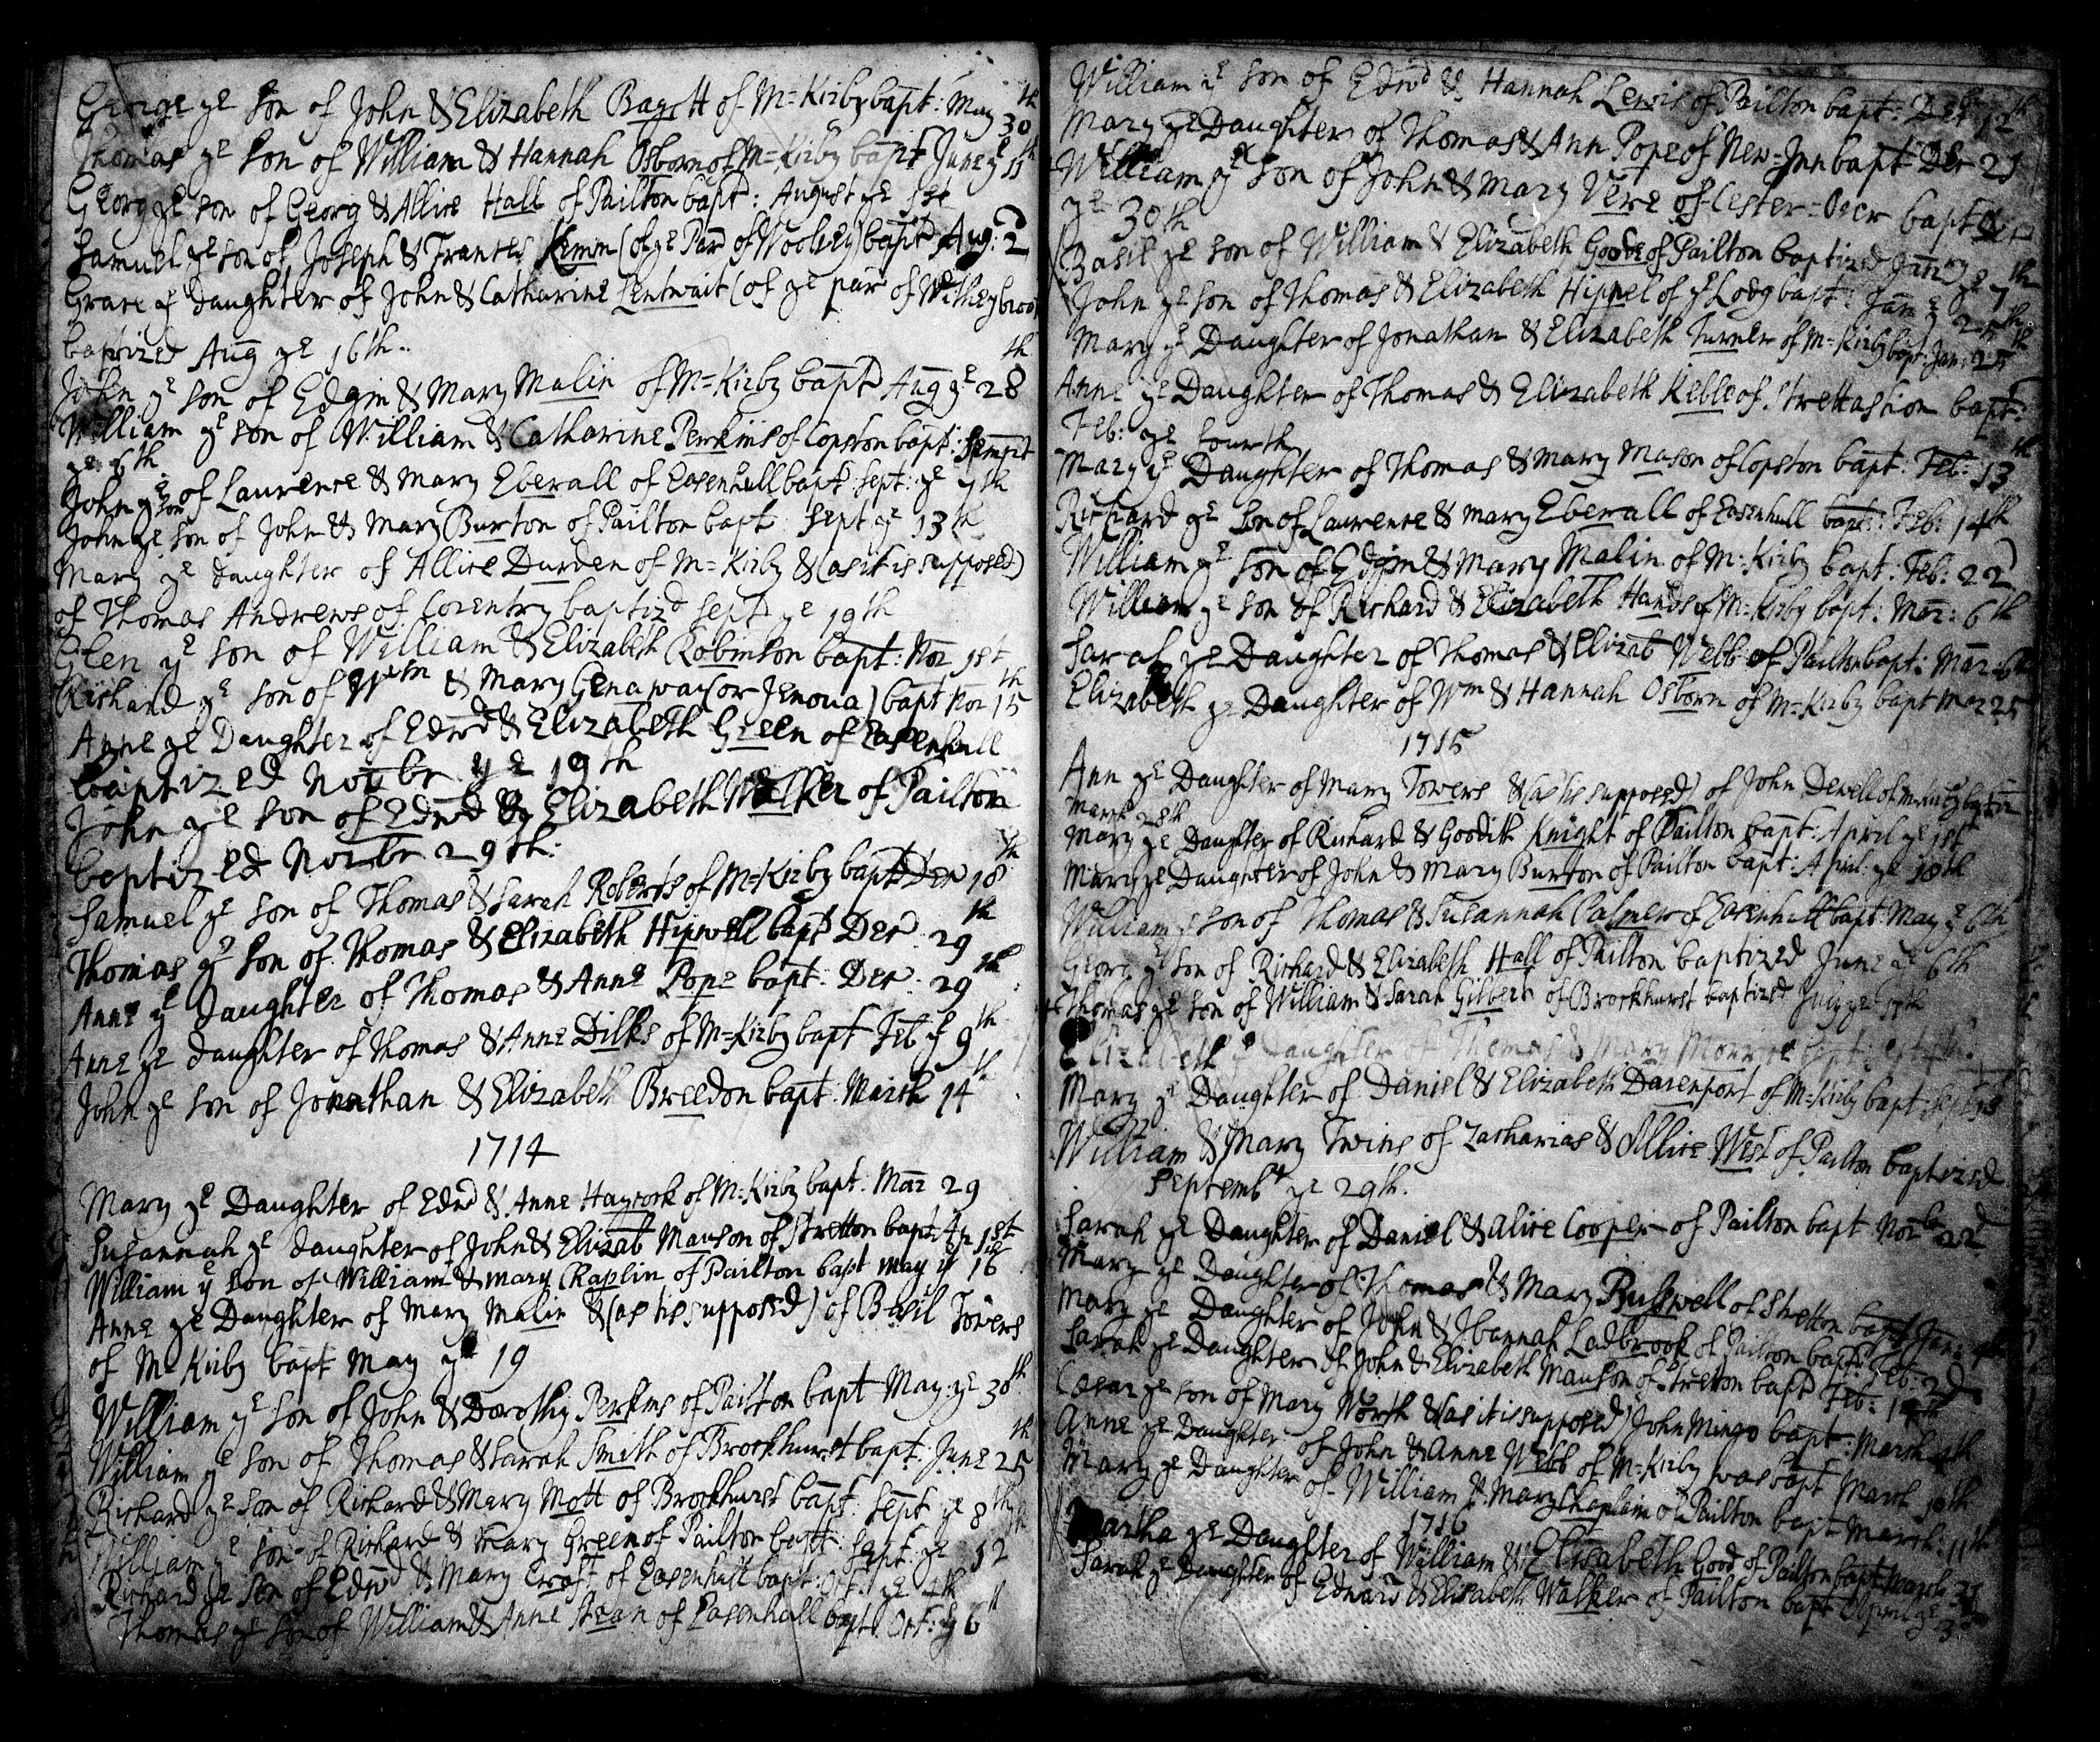 George ye son of John & Elizabeth Bagott of M=Kirby bapt: May 30th
Thomas ye son of William & Hannah Osborn of M=Kirby bapt June ye 11th
Georg ye son of Georg & Allice Hall of Pailton bapt: August ye 1st
Samuel ye son of Joseph & Frances Kemm (of ye Par of Woolvey) bapt Aug: 2
Grace ye Daughter of John & Catharine Lentwait (of ye par of Witheybrook
baptized Aug ye 16th
John ye son of Edgin & Mary Malin of M=Kirby bapt Aug ye 28th
William ye son of William & Catharine Perkins of Copston bapt:
ye 6th
John ye son of Laurence & Mary Eberall of Easenhull bapt: Sept: ye 7th
John ye son of John & Mary Burton of Pailton bapt: Sept ye 13th
Mary ye daughter of Allice Durden of M=Kirby & (as it is supposed)
of Thomas Andrews of Coventry baptizd Sept ye 19th
Glen ye son of William & Elizabeth Robinson bapt: Nor 1st
Richard ye son of Wm & Mary Genaway (or Jenoua) bapt Nor 15th
Anne ye Daughter of Edwd & Elizabeth Green of Easenhull
baptized Novbr ye 19th
John ye son of Edwd & Elizabeth Walker of Pailton
baptized Novbr 29th:
Samuel ye son of Thomas & Sarah Roberts of M=Kirby bapt Der 18th
Thomas ye son of Thomas & Elizabeth Hipwell bapt Der 29th
Anne ye Daughter of Thomas & Anne Pope bapt: Der: 29th
Anne ye daughter of Thomas & Anne Dilks of M=Kirby bapt Feb ye 9th
John ye son of Jonathan & Elizabeth Breedon bapt: March 14th
1714
Mary ye Daughter of Edwd & Anne Haycock of M=Kirby bapt: Mar 29
Susannah ye daughter of John & Elizab Manson of Stretton bapt Ap 1st
William ye son of William & Mary Chaplin of Pailton bapt May ye 16th
Anne ye Daughter of Mary Malin & (as tis supposed) of Basil Towers
of M=Kirby bapt May ye 19
William ye son of John & Dorothy Perkins of Pailton bapt May: ye 30th
William ye son of Thomas & Sarah Smith of Brockhurst bapt: June 25th
Richard ye son of Richard & Mary Mott of Brockhurst bapt: Sept ye 8th
William ye son of Richard & Mary Green of Pailton bapt: Sept: ye 12th
Richard ye son of Edwd & Mary Craft of Easenhull bapt: Oct: ye 4th
Thomas ye son of William & Anne Stean of Easenhall bapt: Oct: ye 6th
William ye son of Edwd & Hannah Lewis of Pailton bapt: Der 12th
Mary ye Daughter of Thomas & Ann Pope of New=Inn bapt Der 21
William ye son of John & Mary Vere of Cester=Over bapt
ye 30th
Basil ye son of William & Elizabeth Goode of Pailton baptized Janry ye 7th
John ye son of Thomas & Elizabeth Hippel of ye Lodg bapt: Jan ye 25th
Mary ye Daughter of Jonathan & Elizabeth Turner of M=Kirby bapt: Jan: 25th
Anne ye Daughter of Thomas & Elizabeth Keble of Strettastion bapt:
Feb: ye fourth
Mary ye Daughter of Thomas & Mary Mason of Copston bapt: Feb: 13th
Richard ye son of Laurence & Mary Eberall of Easenhull bapt: Feb: 14th
William ye son of Edgin & Mary Malin of M=Kirby bapt: Feb: 22
William ye son of Richard & Elizabeth Hands of M=Kirby bapt: Mar: 6th
Sarah ye Daughter of Thomas & Elizab Webb of Pailton bapt: Mar 6th
Elizabeth ye Daughter of Wm & Hannah Osborn of M=Kirby bapt Mar 25
1715
Ann ye Daughter of Mary Towers & (as tis supposed) of John Dewell of M=Kirby
March 28th
Mary ye Daughter of Richard & Goodith Knight of Pailton bapt: April ye 1st
Mary ye Daughter of John & Mary Burton of Pailton bapt: April: ye 18th
William ye son of Thomas & Susannah Palmer of Easenhall bapt: May ye 6th
Georg ye son of Richard & Elizabeth Hall of Pailton baptized June ye 6th
Thomas ye son of William & Sarah Gilbert of Brockhurst baptized July ye 17th
Elizabeth ye Daughter of Thomas & Mary
Mary ye Daughter of Daniel & Elizabeth Davenport of M=Kirby bapt: Sept 18
William & Mary Twins of Zacharias & Allice West of Pailton baptized
Septembr ye 29th.
Sarah ye Daughter of Daniel & Alice Cooper of Pailton bapt Novbr 22d
Mary ye Daughter of Thomas & Mary Buswell of Stretton bapt Jan:
Mary ye Daughter of John & Joannah Ladbrook of Pailton bapt: Feb: 2d
Sarah ye Daughter of John & Elizabeth Manson of Stretton bapt Feb:
Cesar ye son of Mary Worth & (as it is supposed) John Mingo bapt: March
Anne ye Daughter of John & Anne Webb of M=Kirby was bapt March 10th
Mary ye Daughter of William & Mary Chaplain of Pailton bapt March: 11th
1716
Martha ye Daughter of William & Elisabeth Good of Pailton bapt March
Sarah ye Daughter of Edward & Elisabeth Walker of Pailton bapt April ye 3